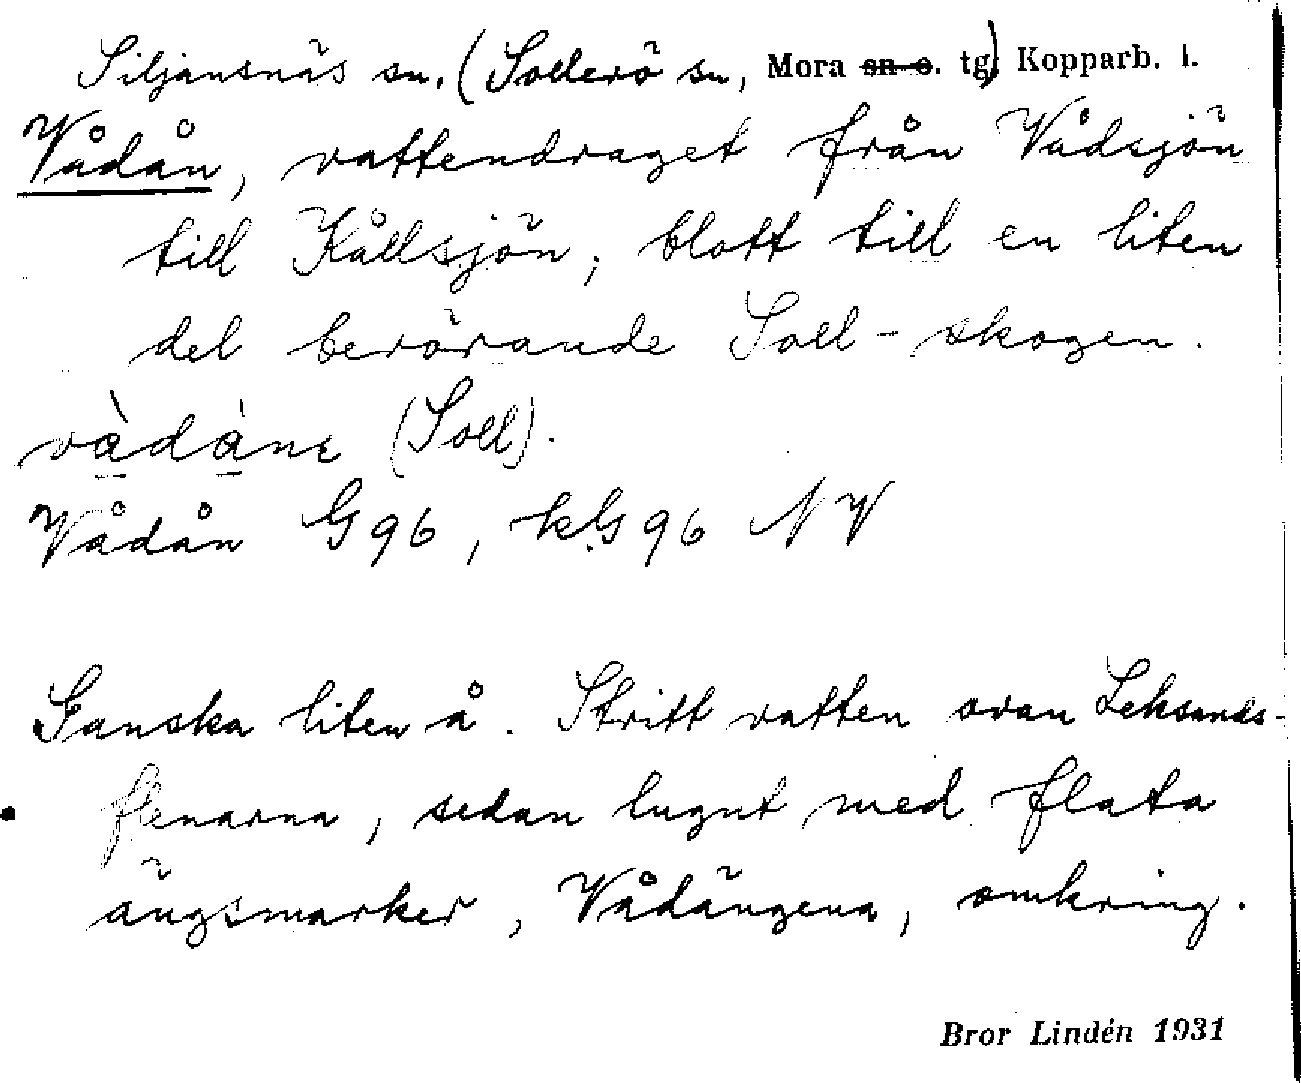 Siljansnäs sn. (Sollerö sn, Mora sn o. tg.) Kopparb. l.
Vådån, vattendraget från Vådsjön
till Kållsjön; blott till en liten
del berörande Soll-skogen.
vàdànɛ (Soll).
Vådån G96, kG96 NV
Ganska liten å. Stritt vatten ovan Leksands-
flenarna, sedan lugnt med flata
ängsmarker, Vådängena, omkring.
Bror Lindén 1931